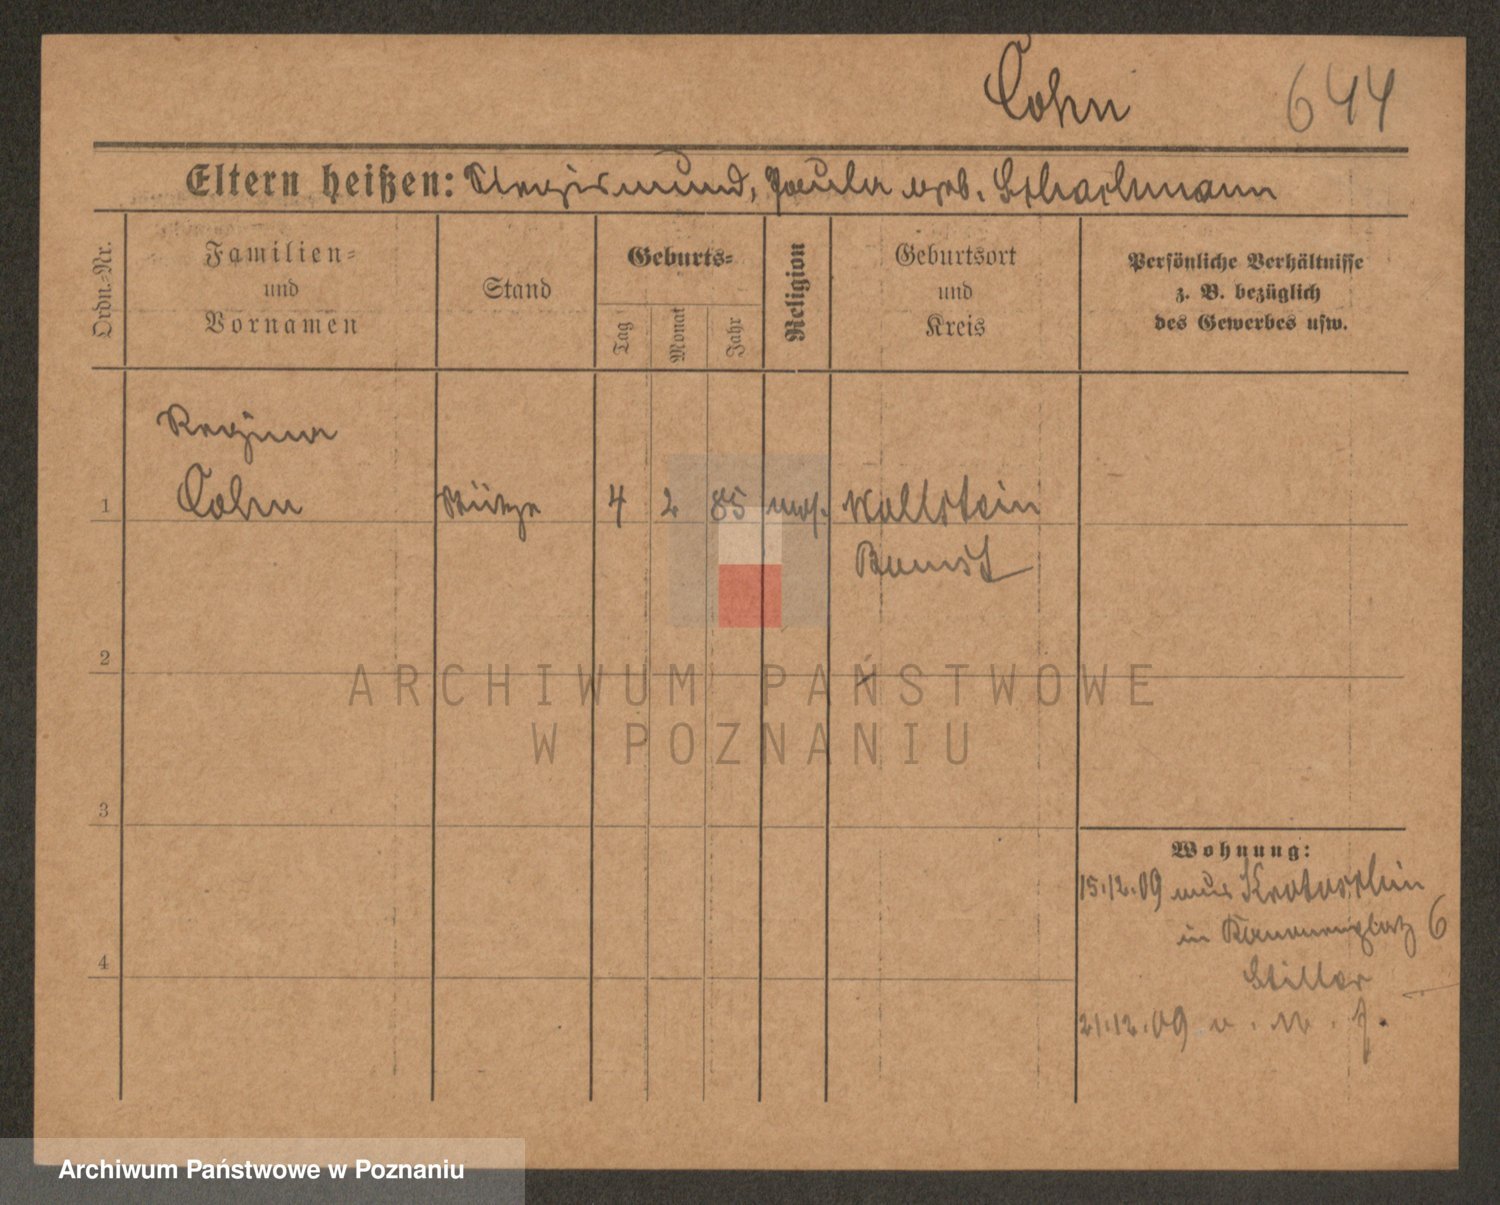 Cohn 644
Eltern heißen: Siegismund, Paula geb. Schachmann
Ordn.-Nr.
Familien-
und
Vornamen
Stand
Geburts-
Tag
Monat
Jahr
Religion
Geburtsort
und
Kreis
Persönliche Verhältnisse
z. B. bezüglich
des Gewerbes usw.
Regina
1 Cohn Stütze 4 2 85 mos. Wollstein
Bomst
2
3
4
Wohnung:
15.12.09 aus Krotoschin
in Kanonenplatz 6
Stiller
21.12.09
ARCHIWUM PAŃSTWOWE
W POZNANIU
Archiwum Państwowe w Poznaniu